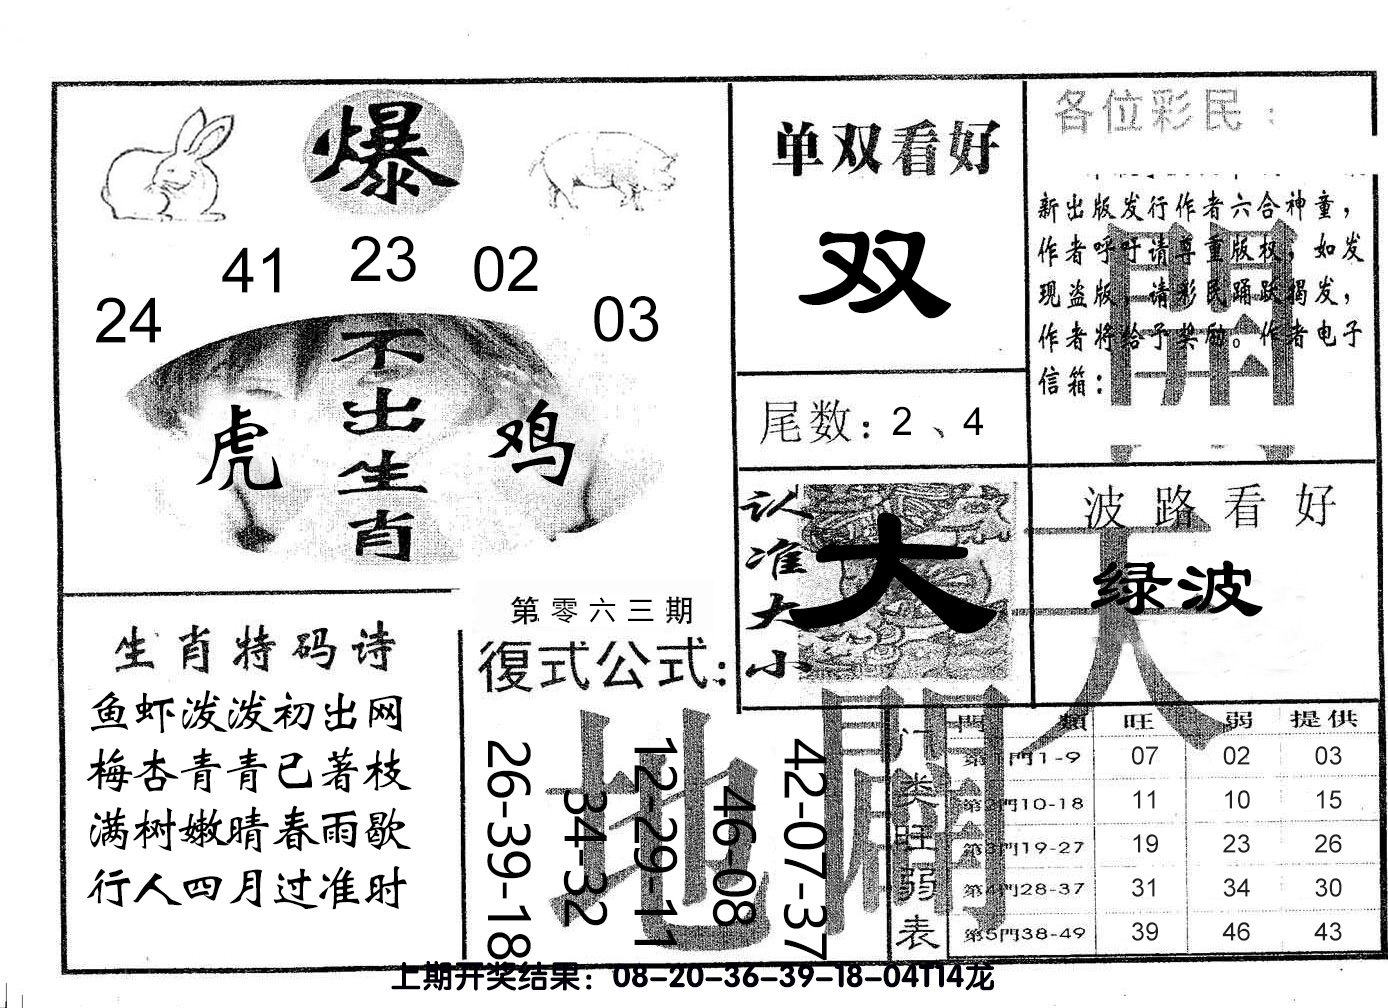 爆
41 23 02
24 03
不出生肖
虎 鸡
单双看好
双
尾数：2、4
各位彩民：
新出版发行作者六合神童，
作者呼吁请尊重版权，如发
现盗版，请彩民踊跃揭发，
作者将给予奖励。作者电子
信箱：
開
认准大小
大
波路看好
绿波
天
生肖特码诗
鱼虾泼泼初出网
梅杏青青已著枝
满树嫩晴春雨歇
行人四月过准时
第零六三期
復式公式：
26-39-18
34-32
12-29-11
46-08
42-07-37
地
門类旺弱表
門類 旺 弱 提供
第1門1-9 07 02 03
第2門10-18 11 10 15
第3門19-27 19 23 26
第4門28-37 31 34 30
第5門38-49 39 46 43
上期开奖结果：08-20-36-39-18-04T14龙